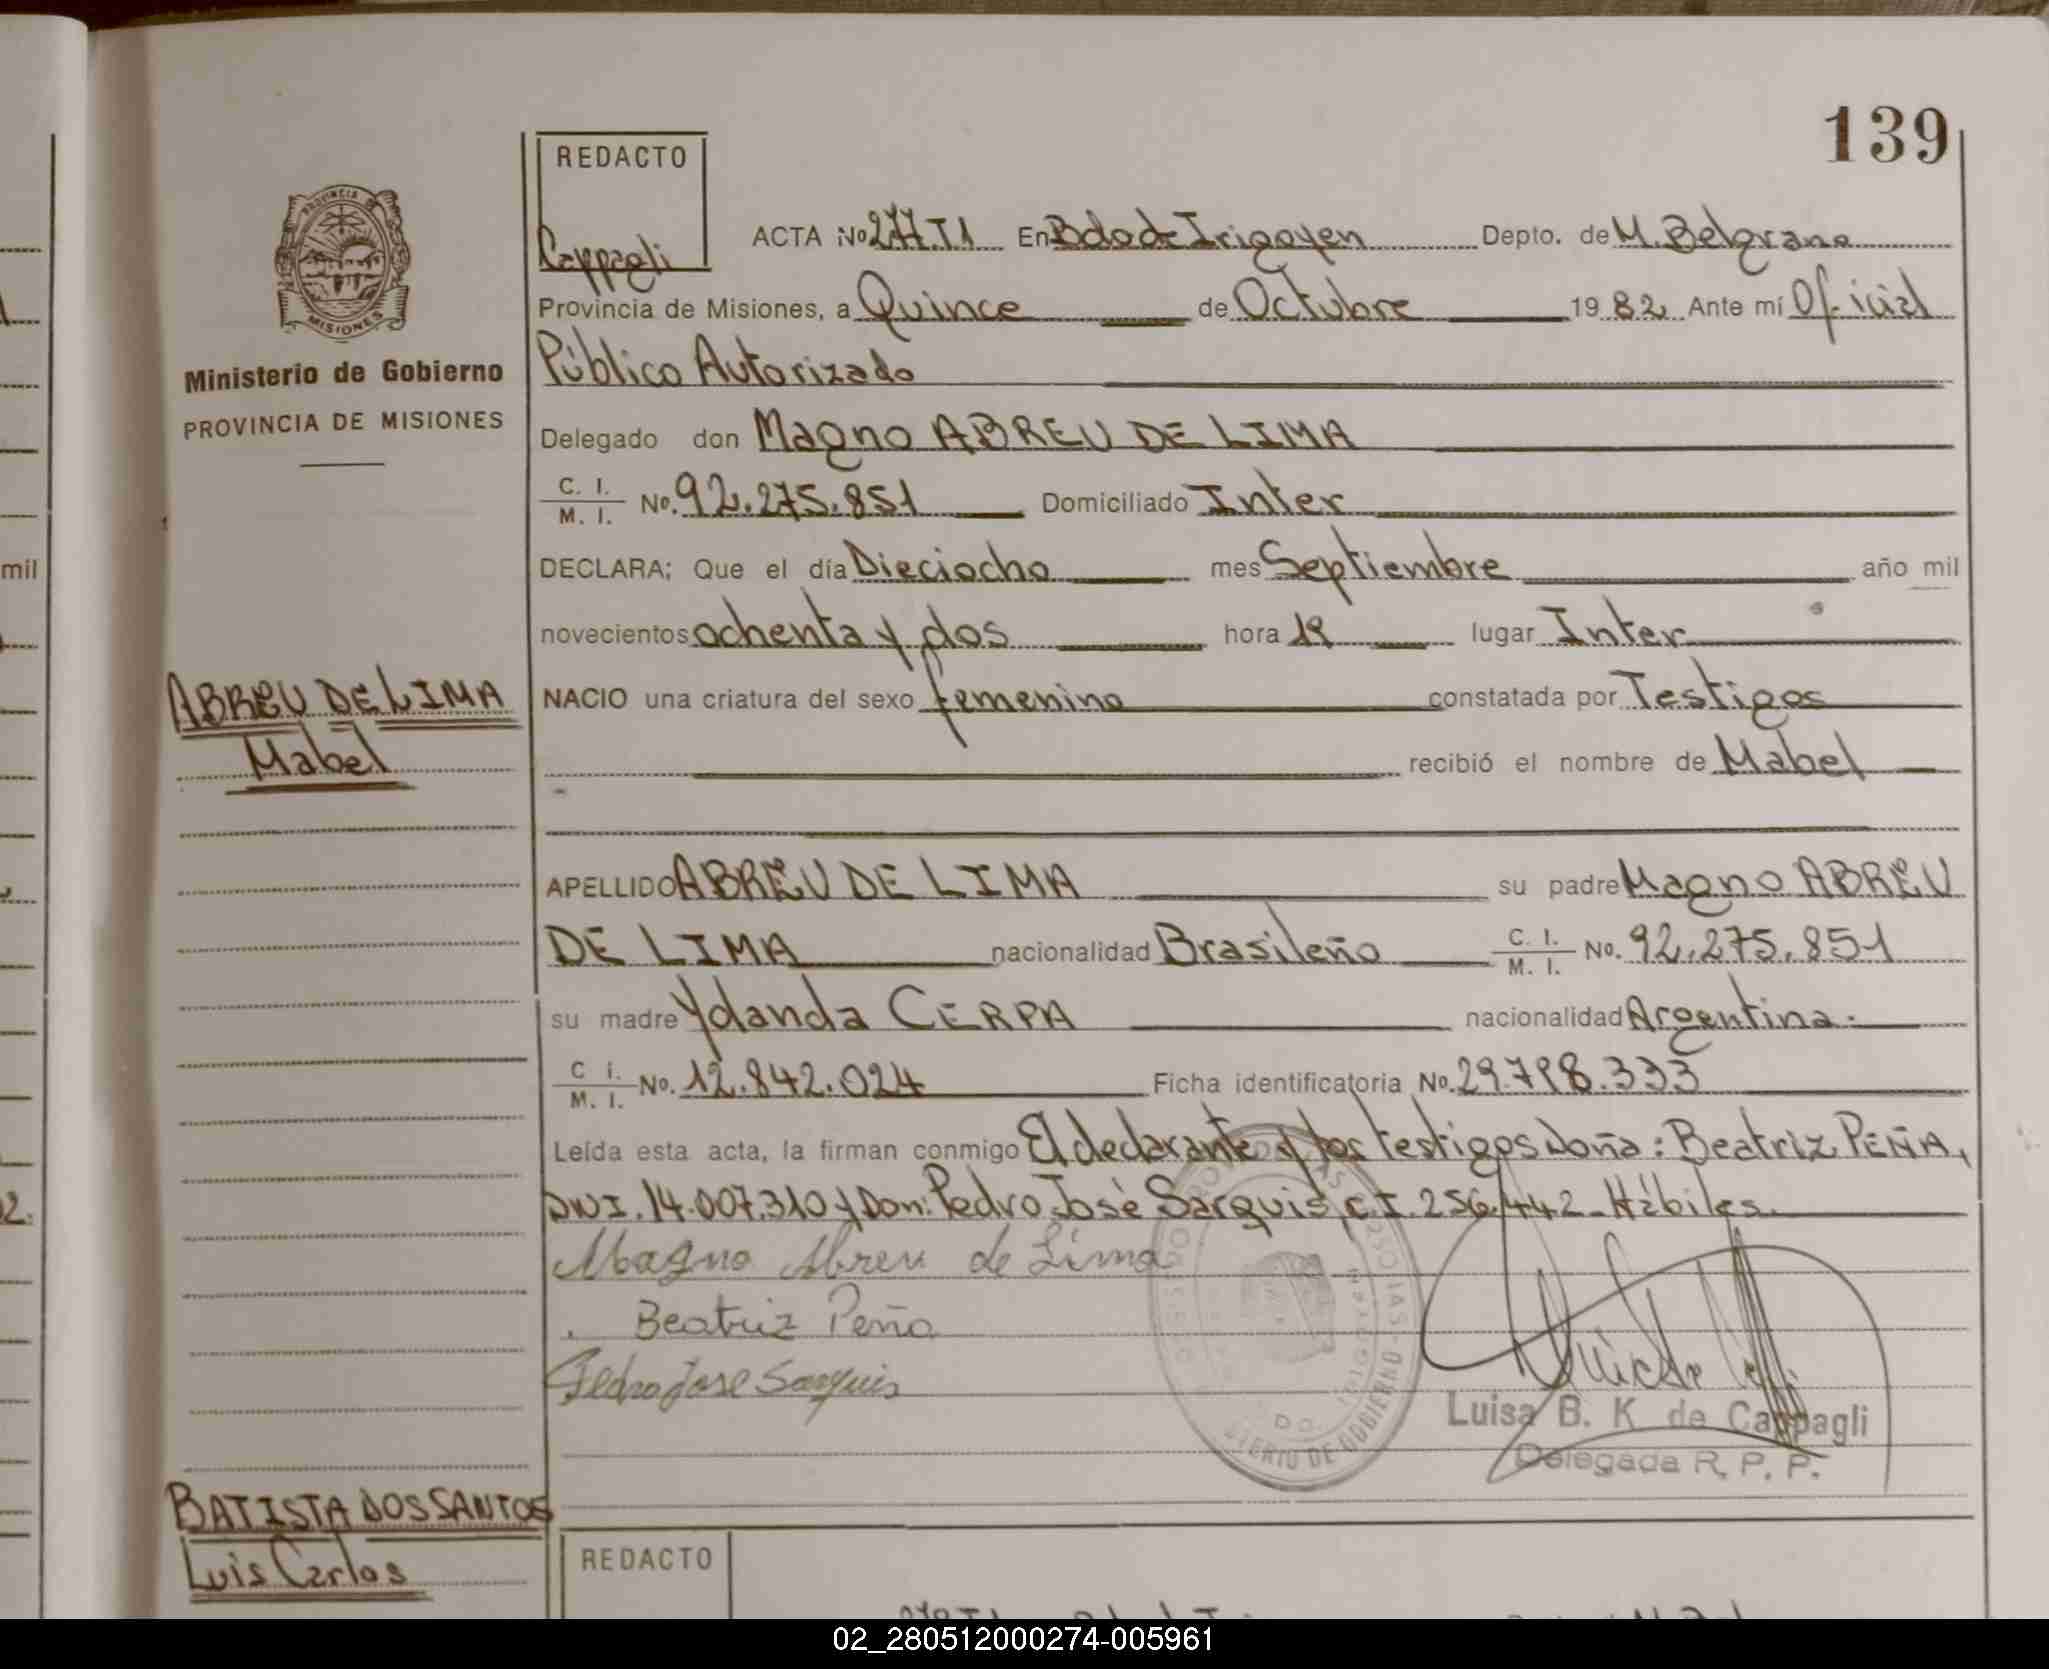 139
REDACTO
Cappagli
ACTA No 277.T1 En Bdo de Irigoyen Depto. de M. Belgrano
Provincia de Misiones, a Quince de Octubre 1982 Ante mí Oficial
Público Autorizado
Delegado don Magno ABREU DE LIMA
C. I. / M. I. No. 92.275.851 Domiciliado Inter
DECLARA; Que el día Dieciocho mes Septiembre año mil
novecientos ochenta y dos hora 19 lugar Inter
NACIO una criatura del sexo femenino constatada por Testigos
recibió el nombre de Mabel
APELLIDO ABREU DE LIMA su padre Magno ABREU
DE LIMA nacionalidad Brasileño C. I. / M. I. No. 92.275.851
su madre Yolanda CERPA nacionalidad Argentina.
C. I. / M. I. No. 12.842.024 Ficha identificatoria No. 29.798.333
Leída esta acta, la firman conmigo El declarante y los testigos Doña: Beatriz PEÑA,
DNI. 14.007.310 y Don: Pedro José Sarquis, C.I. 256.442 - Hábiles.
Magno Abreu de Lima
Beatriz Peña
Pedro Jose Sarquis
Luisa B. K. de Cappagli
Delegada R. P. P.
PROVINCIA DE
MISIONES
Ministerio de Gobierno
PROVINCIA DE MISIONES
ABREU DE LIMA
Mabel
BATISTA DOS SANTOS
Luis Carlos
REDACTO
mil
2.
02_280512000274-005961